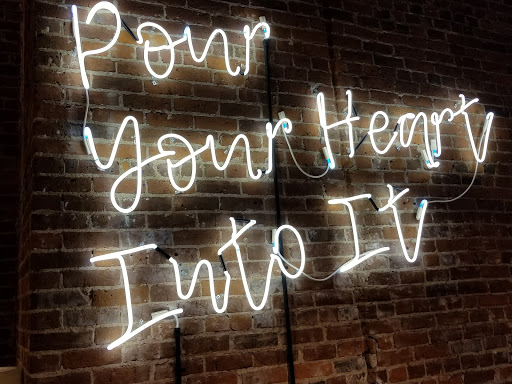 Pour
Your Heart
Into It